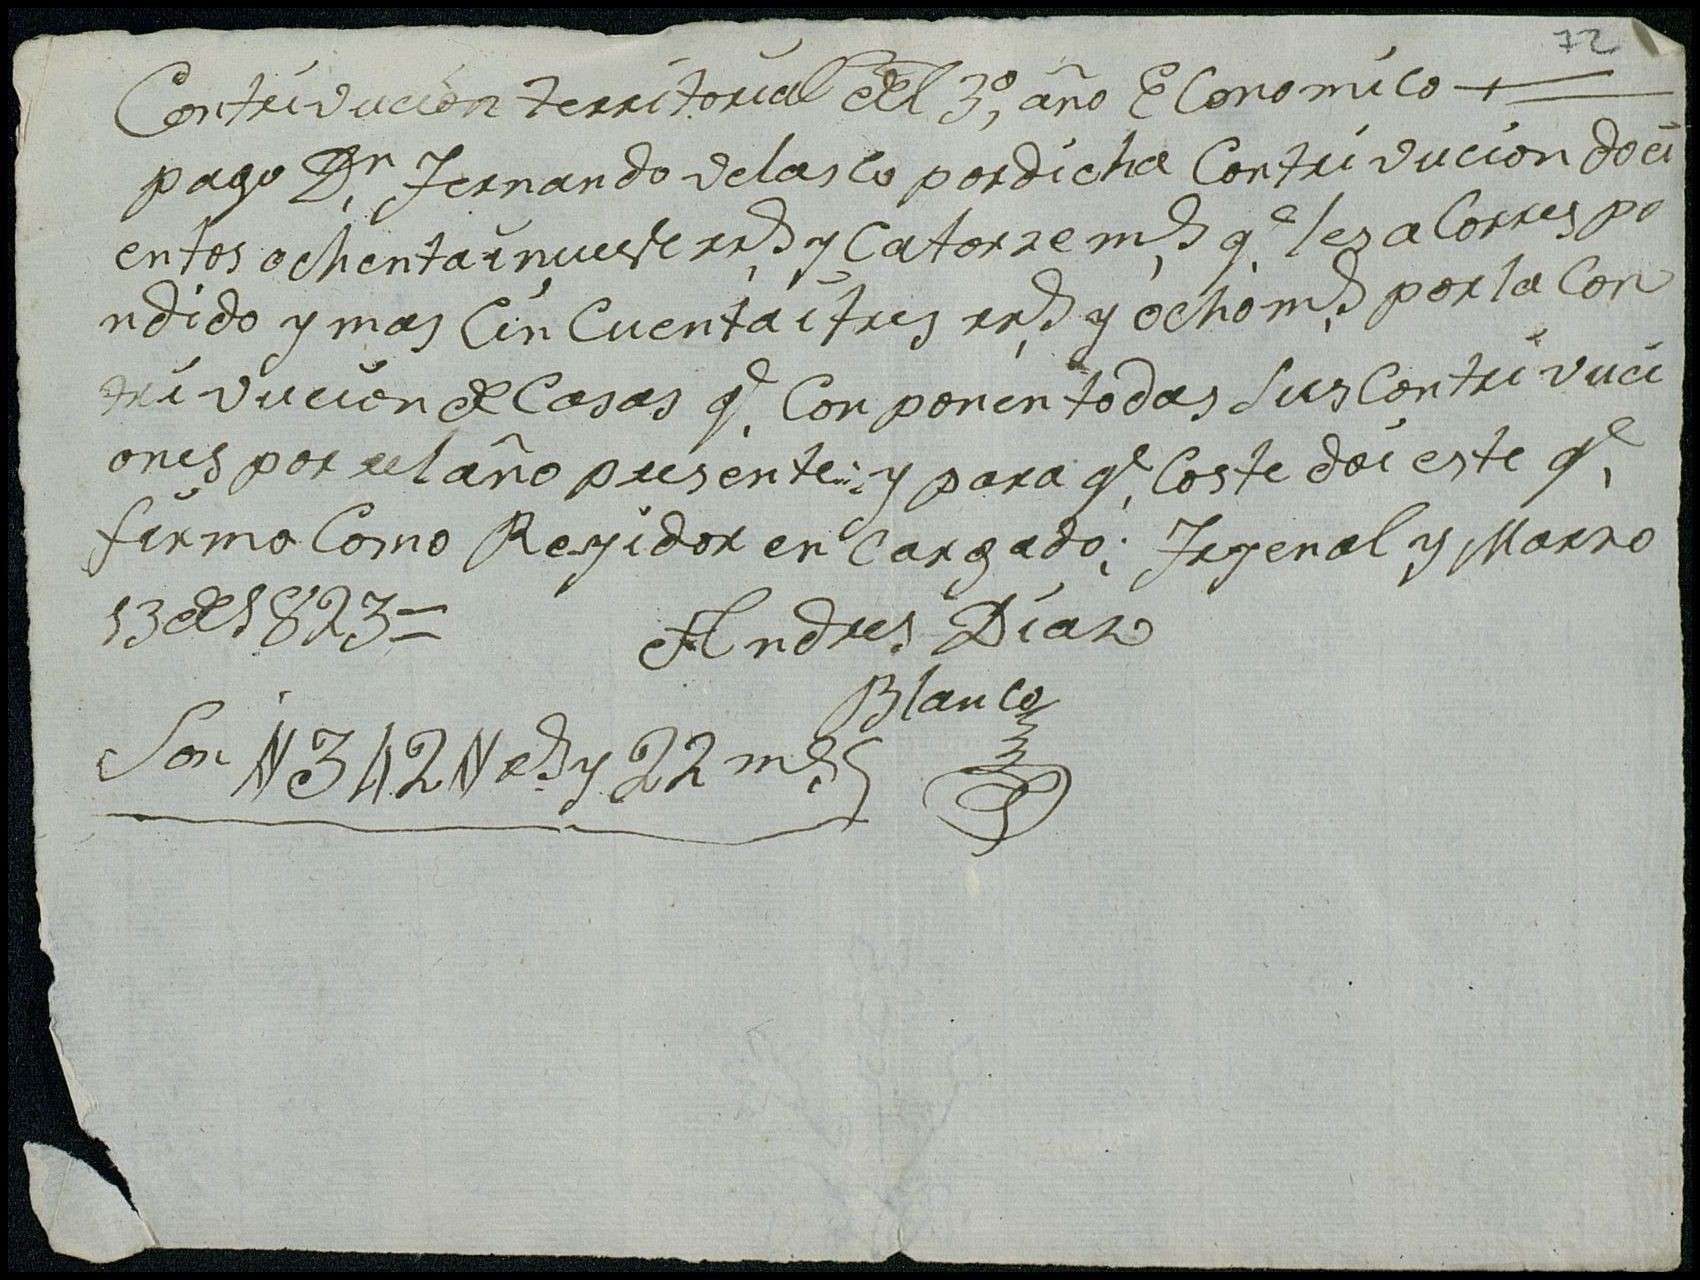 72
Contrivucion territorial del 3º, año Economico
pago Dn Fernando Velasco por dicha Contrivucion doci
entos ochenta i nueve rrs y Catorze ms qe les a Correspo
ndido y mas Cin Cuenta i tres rrs y ocho ms por la Con
trivucion de Casas qe Conponen todas sus Contrivuci
ones por el año presente y para qe Coste doi este qe
firmo Como Reyidor en Cargado; y Marzo
13 de 1823=
Andres Diaz
Blanco
Son 342 rs y 22 ms